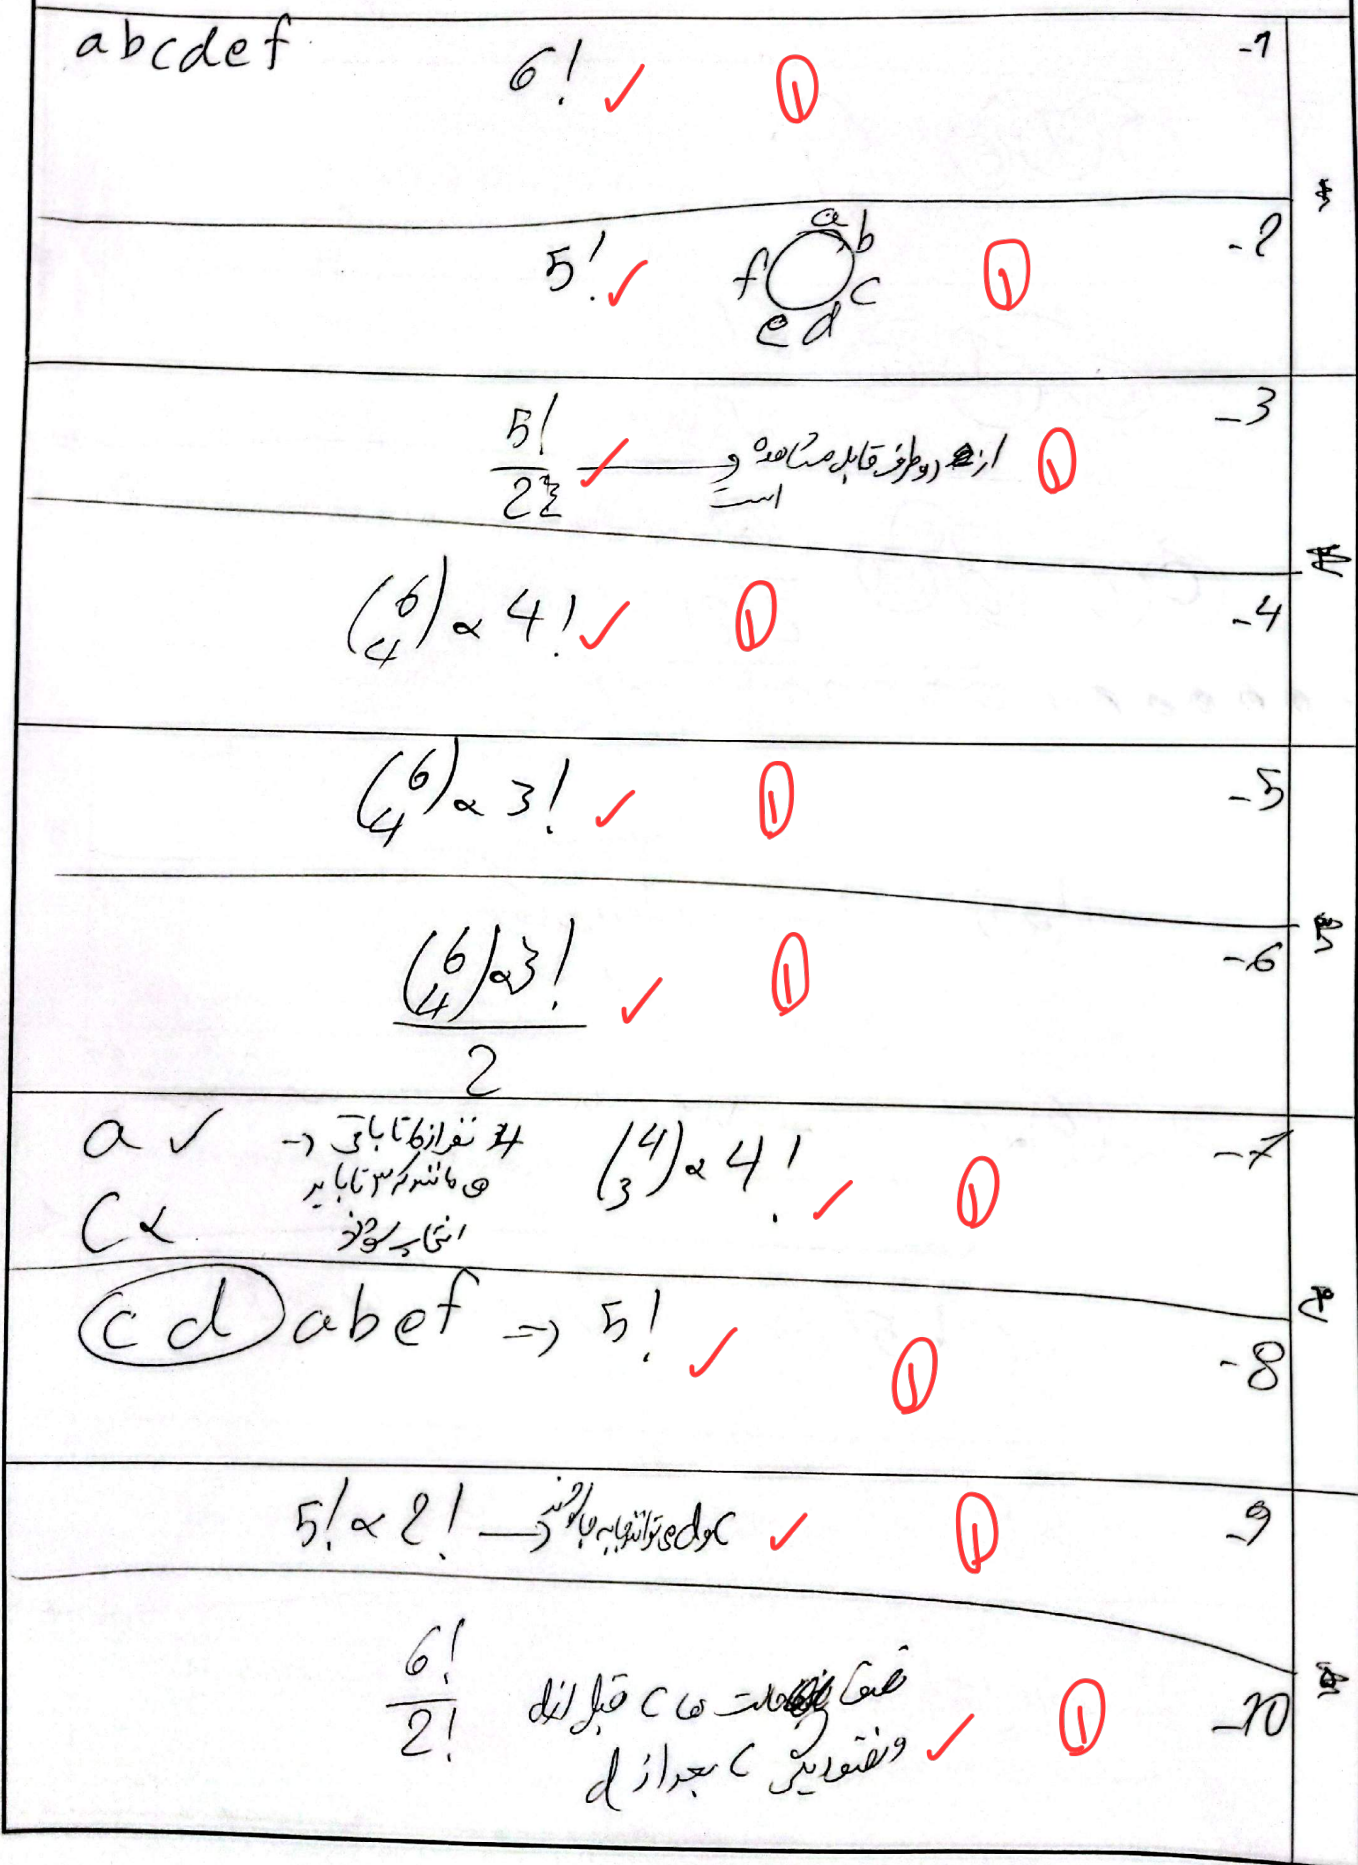 -1
abcdef 6! ✓ 1
-2
5! ✓ 1
a b c d e f
-3
5!/2 ✓ از دو طرف قابل مشاهده است 1
-4
(6 4) × 4! ✓ 1
-5
(6 4) × 3! ✓ 1
-6
(6 4) × 3! / 2 ✓ 1
-7
a ✓
C ×
4 نفر از 6 تا باقی
می مانند که 3 تا باید
انتخاب شوند
(4 3) × 4! ✓ 1
-8
cd abef => 5! ✓ 1
-9
5! × 2! → c و d می توانند جابه جا شوند ✓ 1
-10
6!/2! حالت ها c قبل از d
c بعد از d ✓ 1